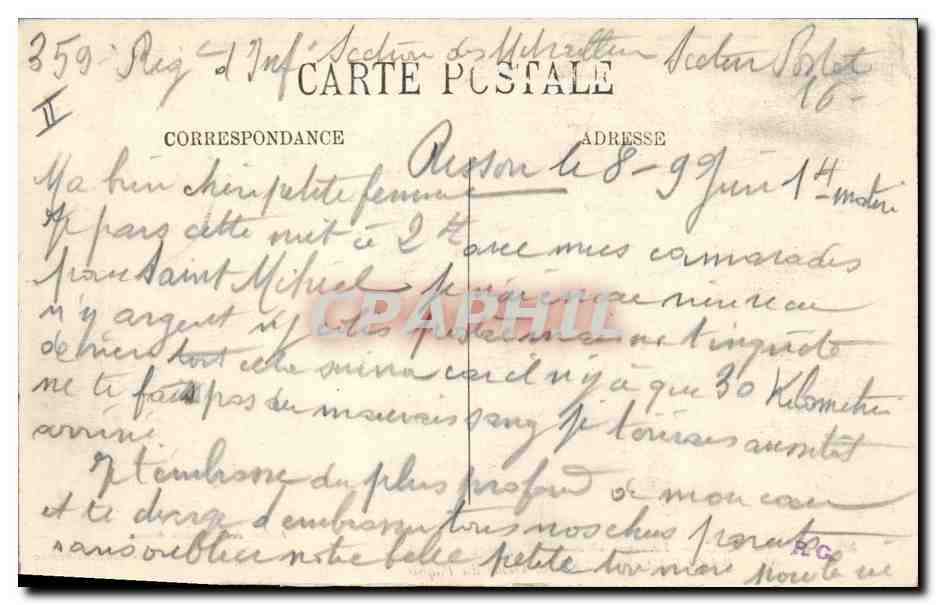 359e Regt d'Inf Section des Mitrailleu Secteur Postal
CARTE POSTALE
16
II
CORRESPONDANCE ADRESSE
le 8-9 Juin 14 matin
Ma bien chère petite femme
Je pars cette nuit à 2h avec mes camarades
pour Saint Mihiel je n'ai encore rien reçu
n'y argent n'y colis postal mais ne t'inquète
de rien tout cela suivra car il n'y a que 30 Kilomètres
ne te fais pas de mauvais sang je t'écrirais aussitôt
arrivé
Je t'embrasse du plus profond de mon cœur
et te charge d'embrasser tous nos chers parents
sans oublier notre belle petite ton mari pour la vie
R.G.
CPAPHIL